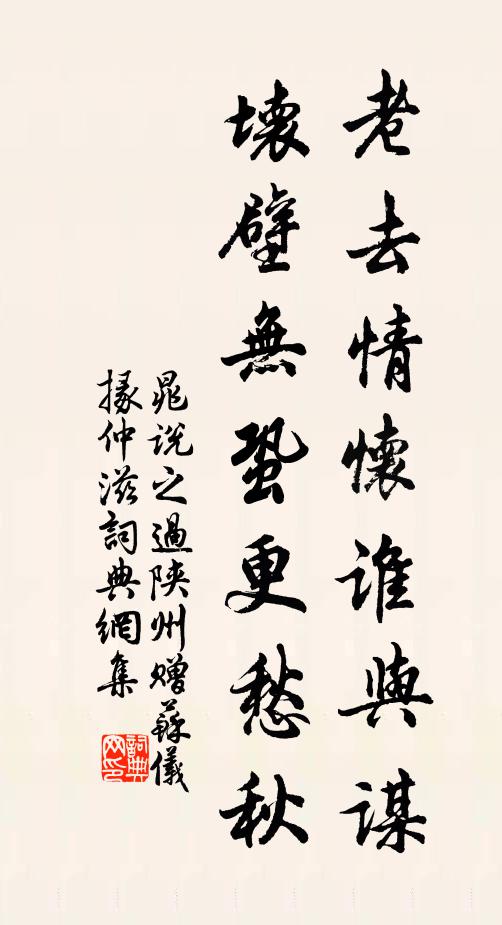 老去情懷誰與謀
壞壁無蛩更愁秋
晁說之過陝州贈蘇儀
掾仲滋詞典網集
詞典
网印